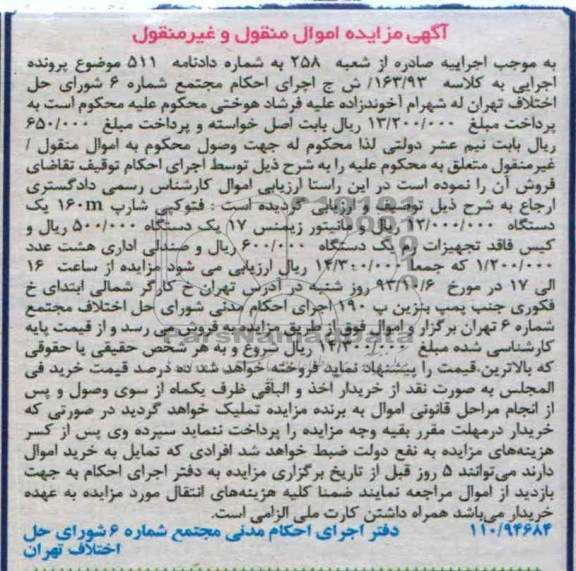 آگهی مزایده اموال منقول و غیرمنقول
به موجب اجراییه صادره از شعبه ۲۵۸ به شماره دادنامه ۵۱۱ موضوع پرونده
اجرایی به کلاسه ۱۶۳/۹۳/ ش ج اجرای احکام مجتمع شماره ۶ شورای حل
اختلاف تهران له شهرام آخوندزاده علیه فرشاد هوختی محکوم علیه محکوم است به
پرداخت مبلغ ۱۳/۲۰۰/۰۰۰ ریال بابت اصل خواسته و پرداخت مبلغ ۶۵۰/۰۰۰
ریال بابت نیم عشر دولتی لذا محکوم له جهت وصول محکوم به اموال منقول /
غیرمنقول متعلق به محکوم علیه را به شرح ذیل توسط اجرای احکام توقیف تقاضای
فروش آن را نموده است در این راستا ارزیابی اموال کارشناس رسمی دادگستری
ارجاع به شرح ذیل توصیف و ارزیابی گردیده است : فتوکپی شارپ ۱۶۰m یک
دستگاه ۱۲/۰۰۰/۰۰۰ ریال و مانیتور زیمنس ۱۷ یک دستگاه ۵۰۰/۰۰۰ ریال و
کیس فاقد تجهیزات رم یک دستگاه ۶۰۰/۰۰۰ ریال و صندلی اداری هشت عدد
۱/۲۰۰/۰۰۰ که جمعا ۱۴/۳۰۰/۰۰۰ ریال ارزیابی می شود مزایده از ساعت ۱۶
الی ۱۷ در مورخ ۹۳/۱۰/۶ روز شنبه در آدرس تهران خ کارگر شمالی ابتدای خ
فکوری جنب پمپ بنزین پ ۱۹۰ اجرای احکام مدنی شورای حل اختلاف مجتمع
شماره ۶ تهران برگزار و اموال فوق از طریق مزایده به فروش می رسد و از قیمت پایه
کارشناسی شده مبلغ ۱۴/۳۰۰/۰۰۰ ریال شروع و به هر شخص حقیقی یا حقوقی
که بالاترین قیمت را پیشنهاد نماید فروخته خواهد شد ده درصد قیمت خرید فی
المجلس به صورت نقد از خریدار اخذ و الباقی ظرف یکماه از سوی وصول و پس
از انجام مراحل قانونی اموال به برنده مزایده تملیک خواهد گردید در صورتی که
خریدار درمهلت مقرر بقیه وجه مزایده را پرداخت ننماید سپرده وی پس از کسر
هزینه‌های مزایده به نفع دولت ضبط خواهد شد افرادی که تمایل به خرید اموال
دارند می‌توانند ۵ روز قبل از تاریخ برگزاری مزایده به دفتر اجرای احکام به جهت
بازدید از اموال مراجعه نمایند ضمنا کلیه هزینه‌های انتقال مورد مزایده به عهده
خریدار می‌باشد همراه داشتن کارت ملی الزامی است.
۱۱۰/۹۴۶۸۴ دفتر اجرای احکام مدنی مجتمع شماره ۶ شورای حل
اختلاف تهران
ParsNamadData